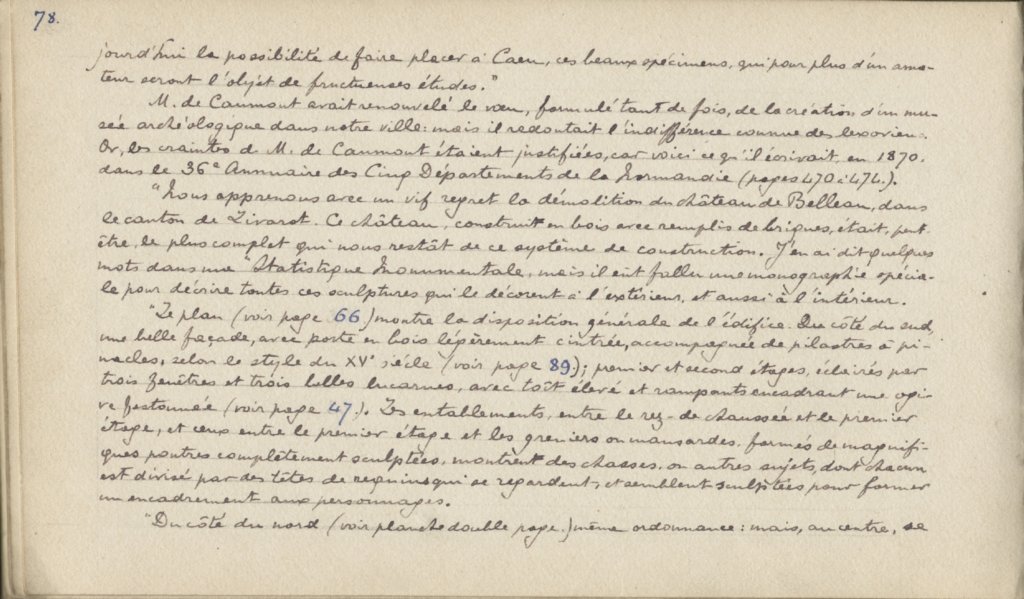 78.
jourd'hui la possibilité de faire placer à Caen, ces beaux spécimens, qui pour plus d'un ama-
teur seront l'objet de fructueuses études."
M. de Caumont avait renouvelé le vœu, formulé tant de fois, de la création d'un mu-
sée archéologique dans notre ville: mais il redoutait l'indifférence connue des lexoviens.
Or, les craintes de M. de Caumont étaient justifiées, car voici ce qu'il écrivait, en 1870.
dans le 36e Annuaire des Cinq Départements de la Normandie (pages 470 à 474.).
"Nous apprenons avec un vif regret la démolition du château de Belleau, dans
le canton de Livarot. Ce château, construit en bois avec remplis de briques, était, peut
être, le plus complet qui nous restât de ce système de construction. J'en ai dit quelques
mots dans ma "Statistique Monumentale, mais il eût fallu une monographie spécia-
le pour décrire toutes ces sculptures qui le décorent à l'extérieur, et aussi à l'intérieur.
"Le plan (voir page 66) montre la disposition générale de l'édifice. Du côté du sud,
une belle façade, avec porte en bois légèrement cintrée, accompagnée de pilastres à pi-
nacles, selon le style du XVe siècle (voir page 89.); premier et second étages, éclairés par
trois fenêtres et trois belles lucarnes, avec toît élevé et rampants encadrant une ogi-
ve festonnée (voir page 47.). Les entablements, entre le rez-de chaussée et le premier
étage, et ceux entre le premier étage et les greniers ou mansardes, formés de magnifi-
ques poutres complètement sculptées, montrent des chasses, ou autres sujets, dont chacun
est divisé par des têtes de requins qui se regardent, et semblent sculptées pour former
un encadrement aux personnages.
"Du côté du nord (voir planche double page.) même ordonnance: mais, au centre, se